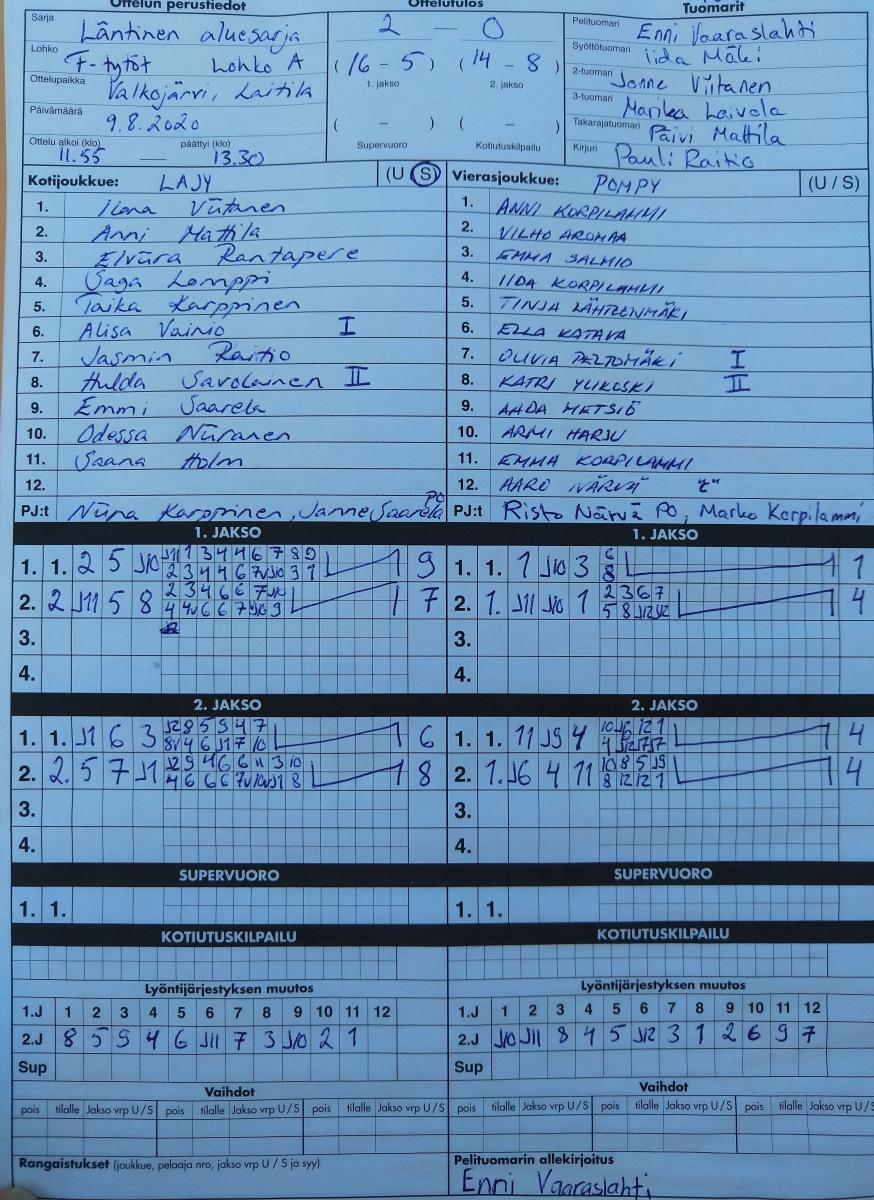 Ottelun perustiedot
Sarja Läntinen aluesarja
Lohko F-tytöt Lohko A
Ottelupaikka Valkojärvi, Laitila
Päivämäärä 9.8.2020
Ottelu alkoi (klo) päättyi (klo)
11.55 — 13.30
Ottelutulos
2 — 0
(16 - 5) (14 - 8)
1. jakso 2. jakso
( - ) ( - )
Supervuoro Kotiutuskilpailu
Tuomarit
Pelituomari Enni Vaaraslahti
Syöttötuomari Iida Mäki
2-tuomari Jonne Viitanen
3-tuomari Marika Laivola
Takarajatuomari Päivi Mattila
Kirjuri Pauli Raitio
Kotijoukkue: LAJY (U S)
1. Ilona Viitanen
2. Anni Mattila
3. Elviira Rantapere
4. Saga Lomppi
5. Taika Karppinen
6. Alisa Vainio I
7. Jasmin Raitio
8. Hulda Savolainen II
9. Emmi Saarela
10. Odessa Niiranen
11. Saana Holm
12.
PJ:t Niina Karppinen, Janne Saarela PO
Vierasjoukkue: POMPY (U / S)
1. ANNI KORPILAMMI
2. VILHO AROMAA
3. EMMA SALMIO
4. IIDA KORPILAMMI
5. TINJA LÄHTEENMÄKI
6. ELLA KATAVA
7. OLIVIA PELTOMÄKI I
8. KATRI YLIKOSKI II
9. AADA METSIÖ
10. ARMI HARJU
11. EMMA KORPILAMMI
12. AARO NÄRVÄ
PJ:t Risto Närvä PO, Marko Korpilammi
1. JAKSO
1. 1. 2 5 J10 9
2. 2 J11 5 8 7
3.
4.
1. JAKSO
1. 1. 1 J10 3 6 8 1
2. 1. J11 J10 1 2 3 6 7 4
5 8 J12 J12
3.
4.
2. JAKSO
1. 1. J1 6 3 6
2. 2. 5 7 J1 8
3.
4.
2. JAKSO
1. 1. 11 J9 4 4
2. 1. J6 4 11 10 8 5 J9 4
8 12 12 1
3.
4.
SUPERVUORO
1. 1.
SUPERVUORO
1. 1.
KOTIUTUSKILPAILU
KOTIUTUSKILPAILU
Lyöntijärjestyksen muutos
1.J 1 2 3 4 5 6 7 8 9 10 11 12
2.J 8 5 9 4 6 J11 7 3 J10 2 1
Sup
Lyöntijärjestyksen muutos
1.J 1 2 3 4 5 6 7 8 9 10 11 12
2.J J10 J11 8 4 5 J12 3 1 2 6 9 7
Sup
Vaihdot
pois tilalle Jakso vrp U / S pois tilalle Jakso vrp U / S pois tilalle Jakso vrp U / S
Vaihdot
pois tilalle Jakso vrp U / S pois tilalle Jakso vrp U / S pois tilalle Jakso vrp U / S
Rangaistukset (joukkue, pelaaja nro, jakso vrp U / S ja syy)
Pelituomarin allekirjoitus
Enni Vaaraslahti